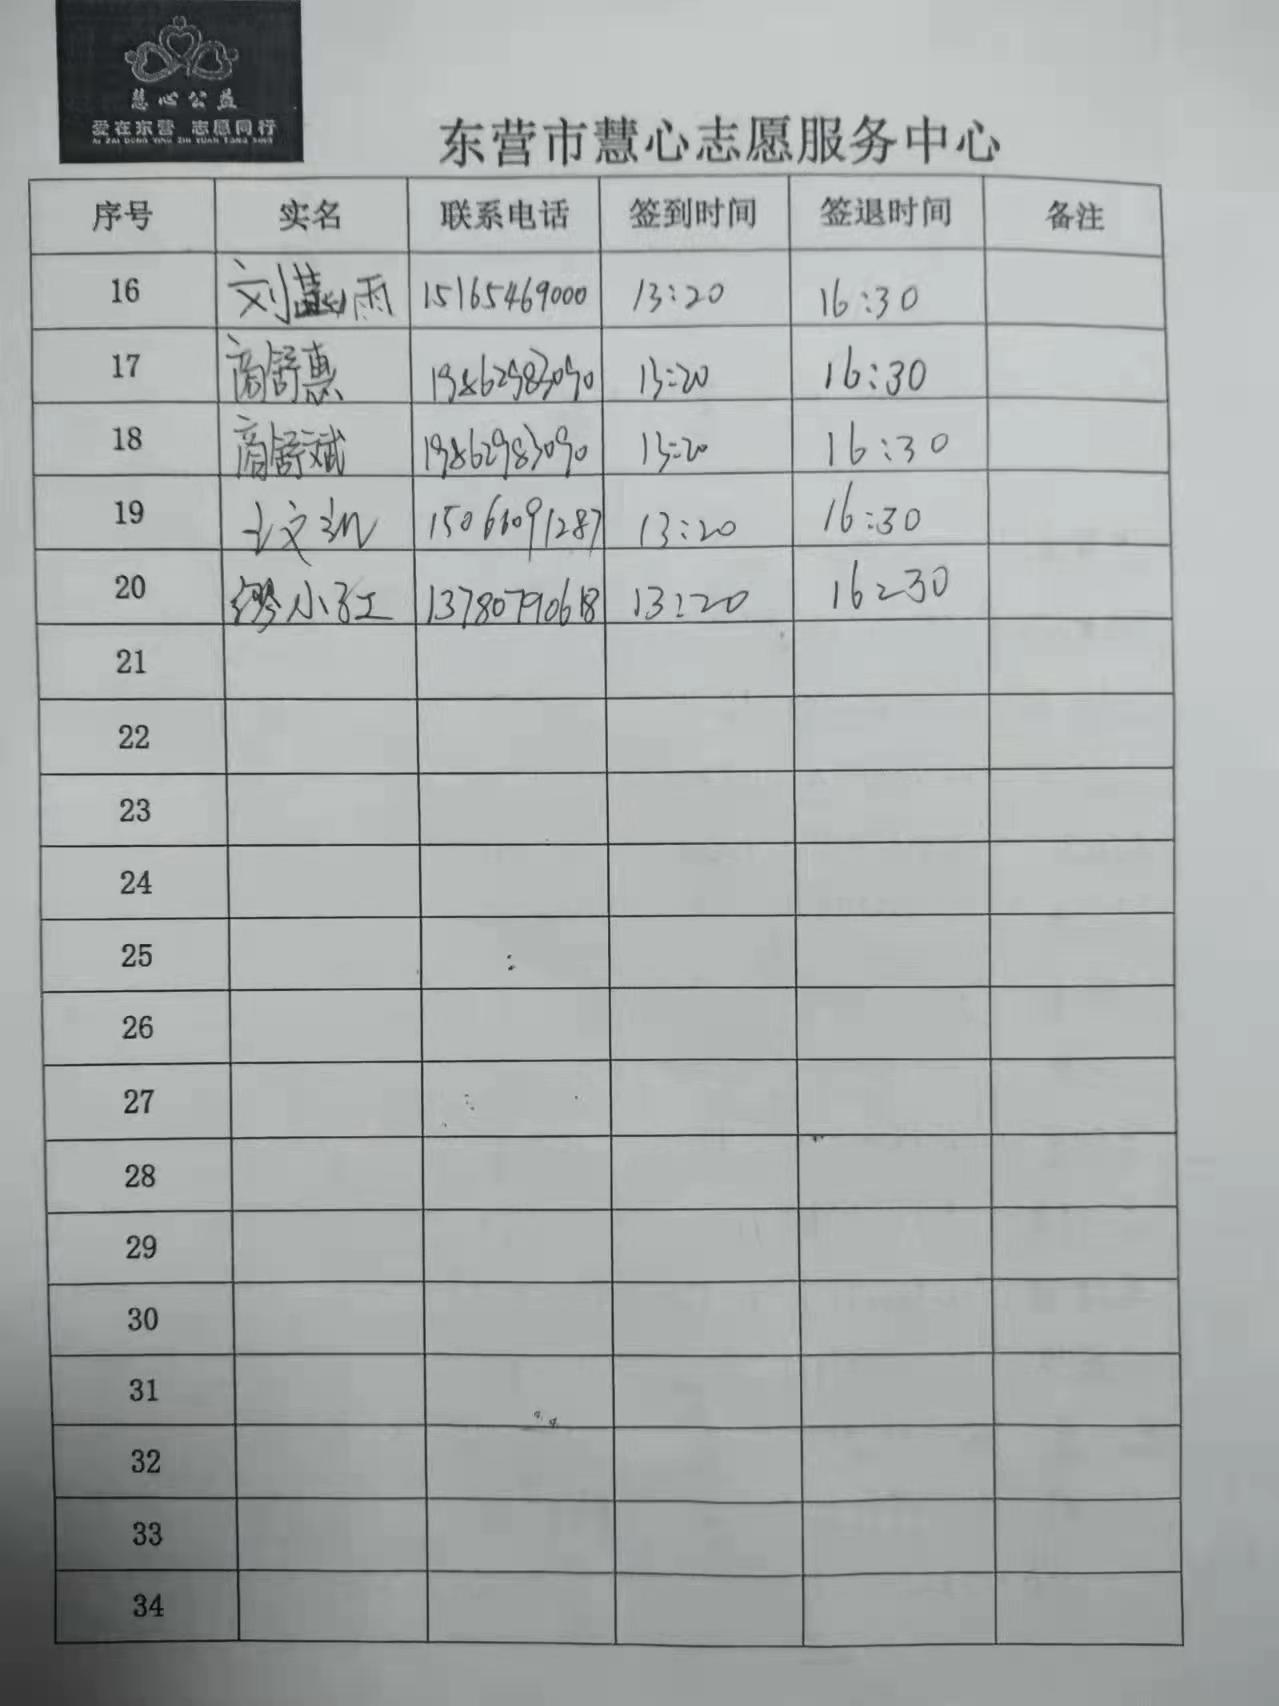 慧心公益
爱在东营 志愿同行
AI ZAI DONG YING ZHI YUAN TONG XING
东营市慧心志愿服务中心
序号 实名 联系电话 签到时间 签退时间 备注
16 刘 雨 15165469000 13:20 16:30
17 商舒惠 19862983090 13:20 16:30
18 商舒斌 19862983090 13:20 16:30
19 文 1506 091287 13:20 16:30
20 缪小红 13780790618 13:20 16:30
21
22
23
24
25
26
27
28
29
30
31
32
33
34